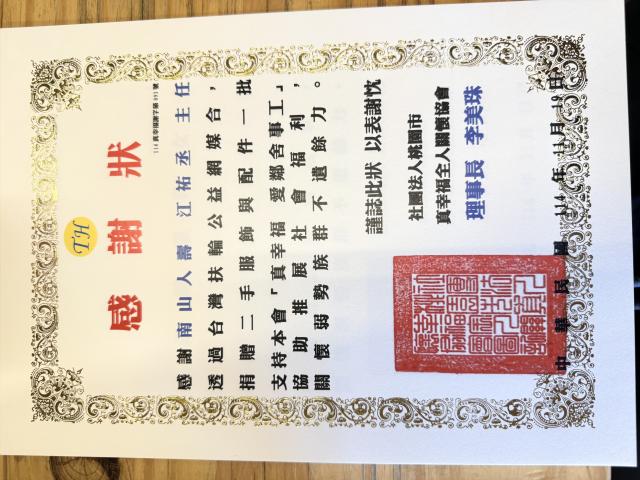 TH
感謝狀
114真幸福謝字第091號
感謝南山人壽 江祐丞 主任
透過台灣扶輪公益網媒合，
捐贈二手服飾與配件一批
支持本會「真幸福 愛鄰舍事工」
協助推展社會福利，
關懷弱勢族群不遺餘力。
謹誌此狀 以表謝忱
社團法人桃園市
真幸福全人關懷協會
理事長 李美珠
中華民國 114 年 11 月 19 日